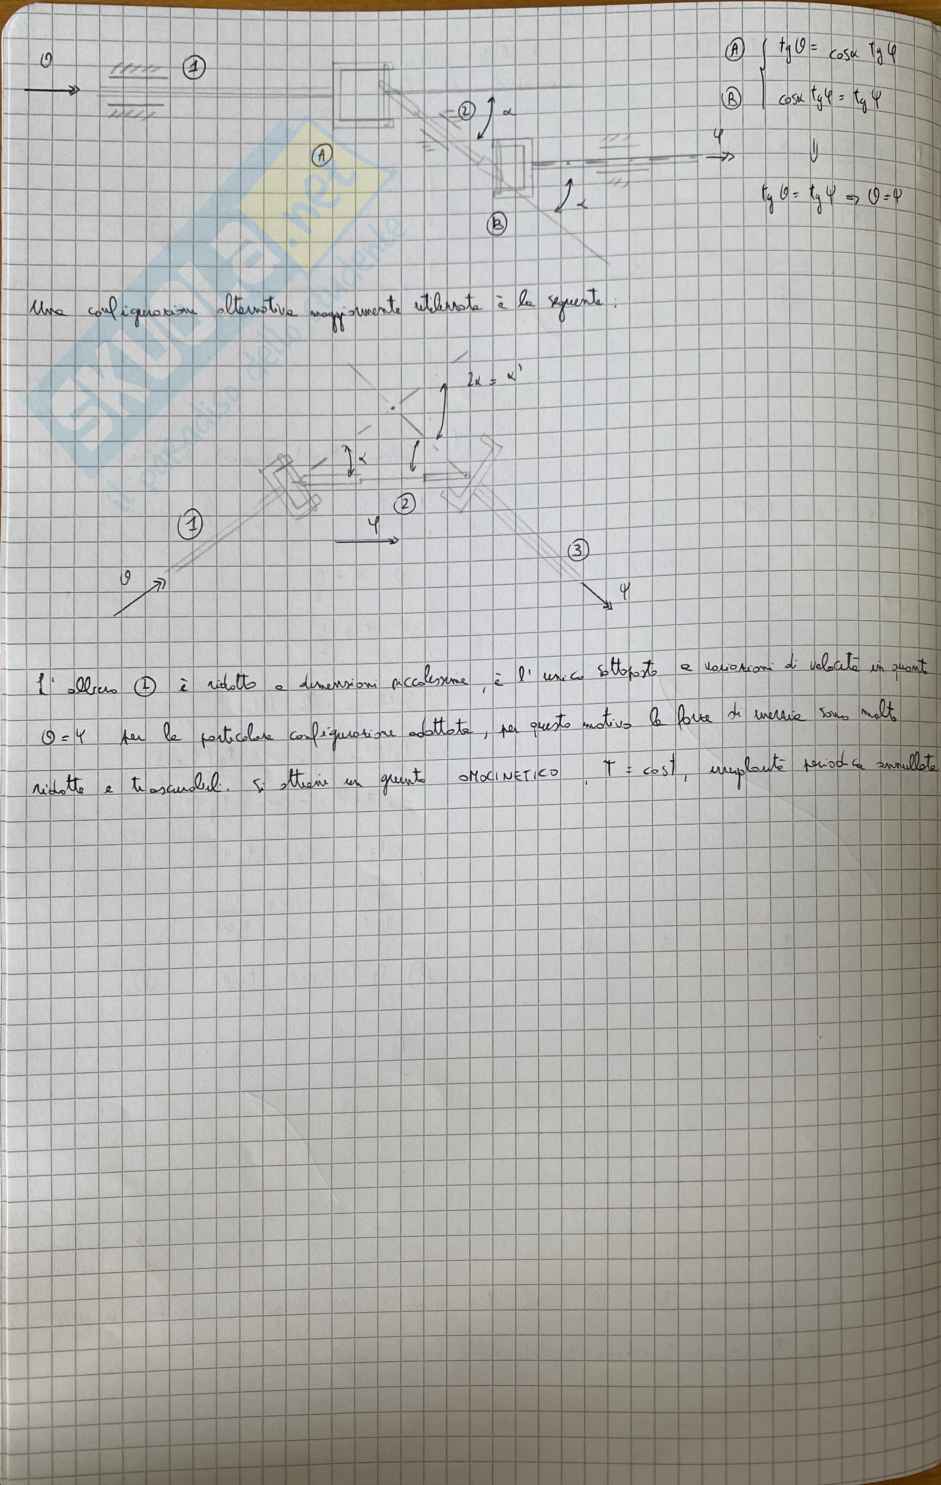 ϑ
①
Ⓐ
②
α
Ⓑ
α
φ
Ⓐ { tgϑ = cosα tgφ
Ⓑ cosα tgφ = tgψ
⇓
tgϑ = tgψ ⇒ ϑ=ψ
SKUOLA.net
il paradiso dello studente
Una configurazione alternativa maggiormente utilizzata è la seguente:
2α = α'
α
①
②
φ
③
ϑ
ψ
L'albero ② è ridotto a dimensioni piccolissime, è l'unico sottoposto a variazioni di velocità in quanto
ϑ=ψ per la particolare configurazione adottata, per questo motivo le forze di inerzia sono molto
ridotte e trascurabili. Si ottiene un giunto OMOCINETICO, τ = cost, periodica annullata